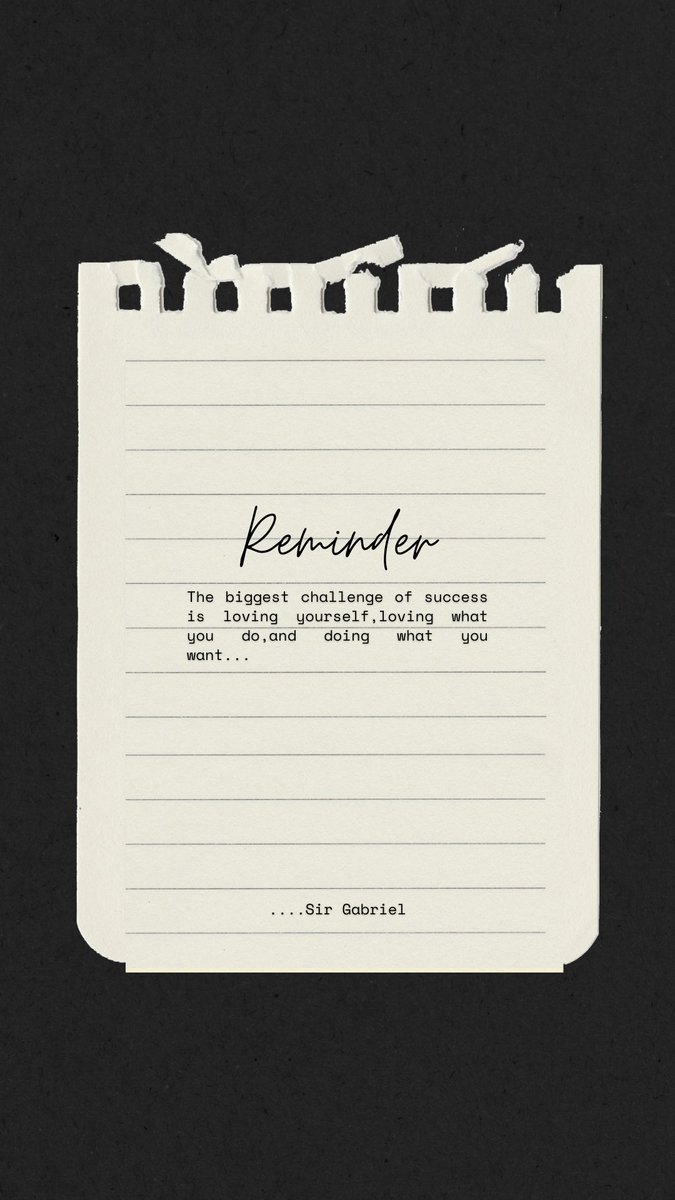 Reminder
The biggest challenge of success
is loving yourself,loving what
you do,and doing what you
want...
....Sir Gabriel